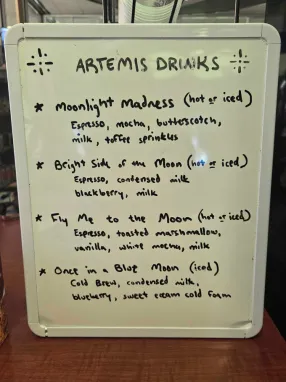 ARTEMIS DRINKS
* Moonlight Madness (hot or iced)
Espresso, mocha, butterscotch,
milk, toffee sprinkles
* Bright Side of the Moon (hot or iced)
Espresso, condensed milk
blackberry, milk
* Fly Me to the Moon (hot or iced)
Espresso, toasted marshmallow,
vanilla, white mocha, milk
* Once in a Blue Moon (iced)
Cold Brew, condensed milk,
blueberry, sweet cream cold foam